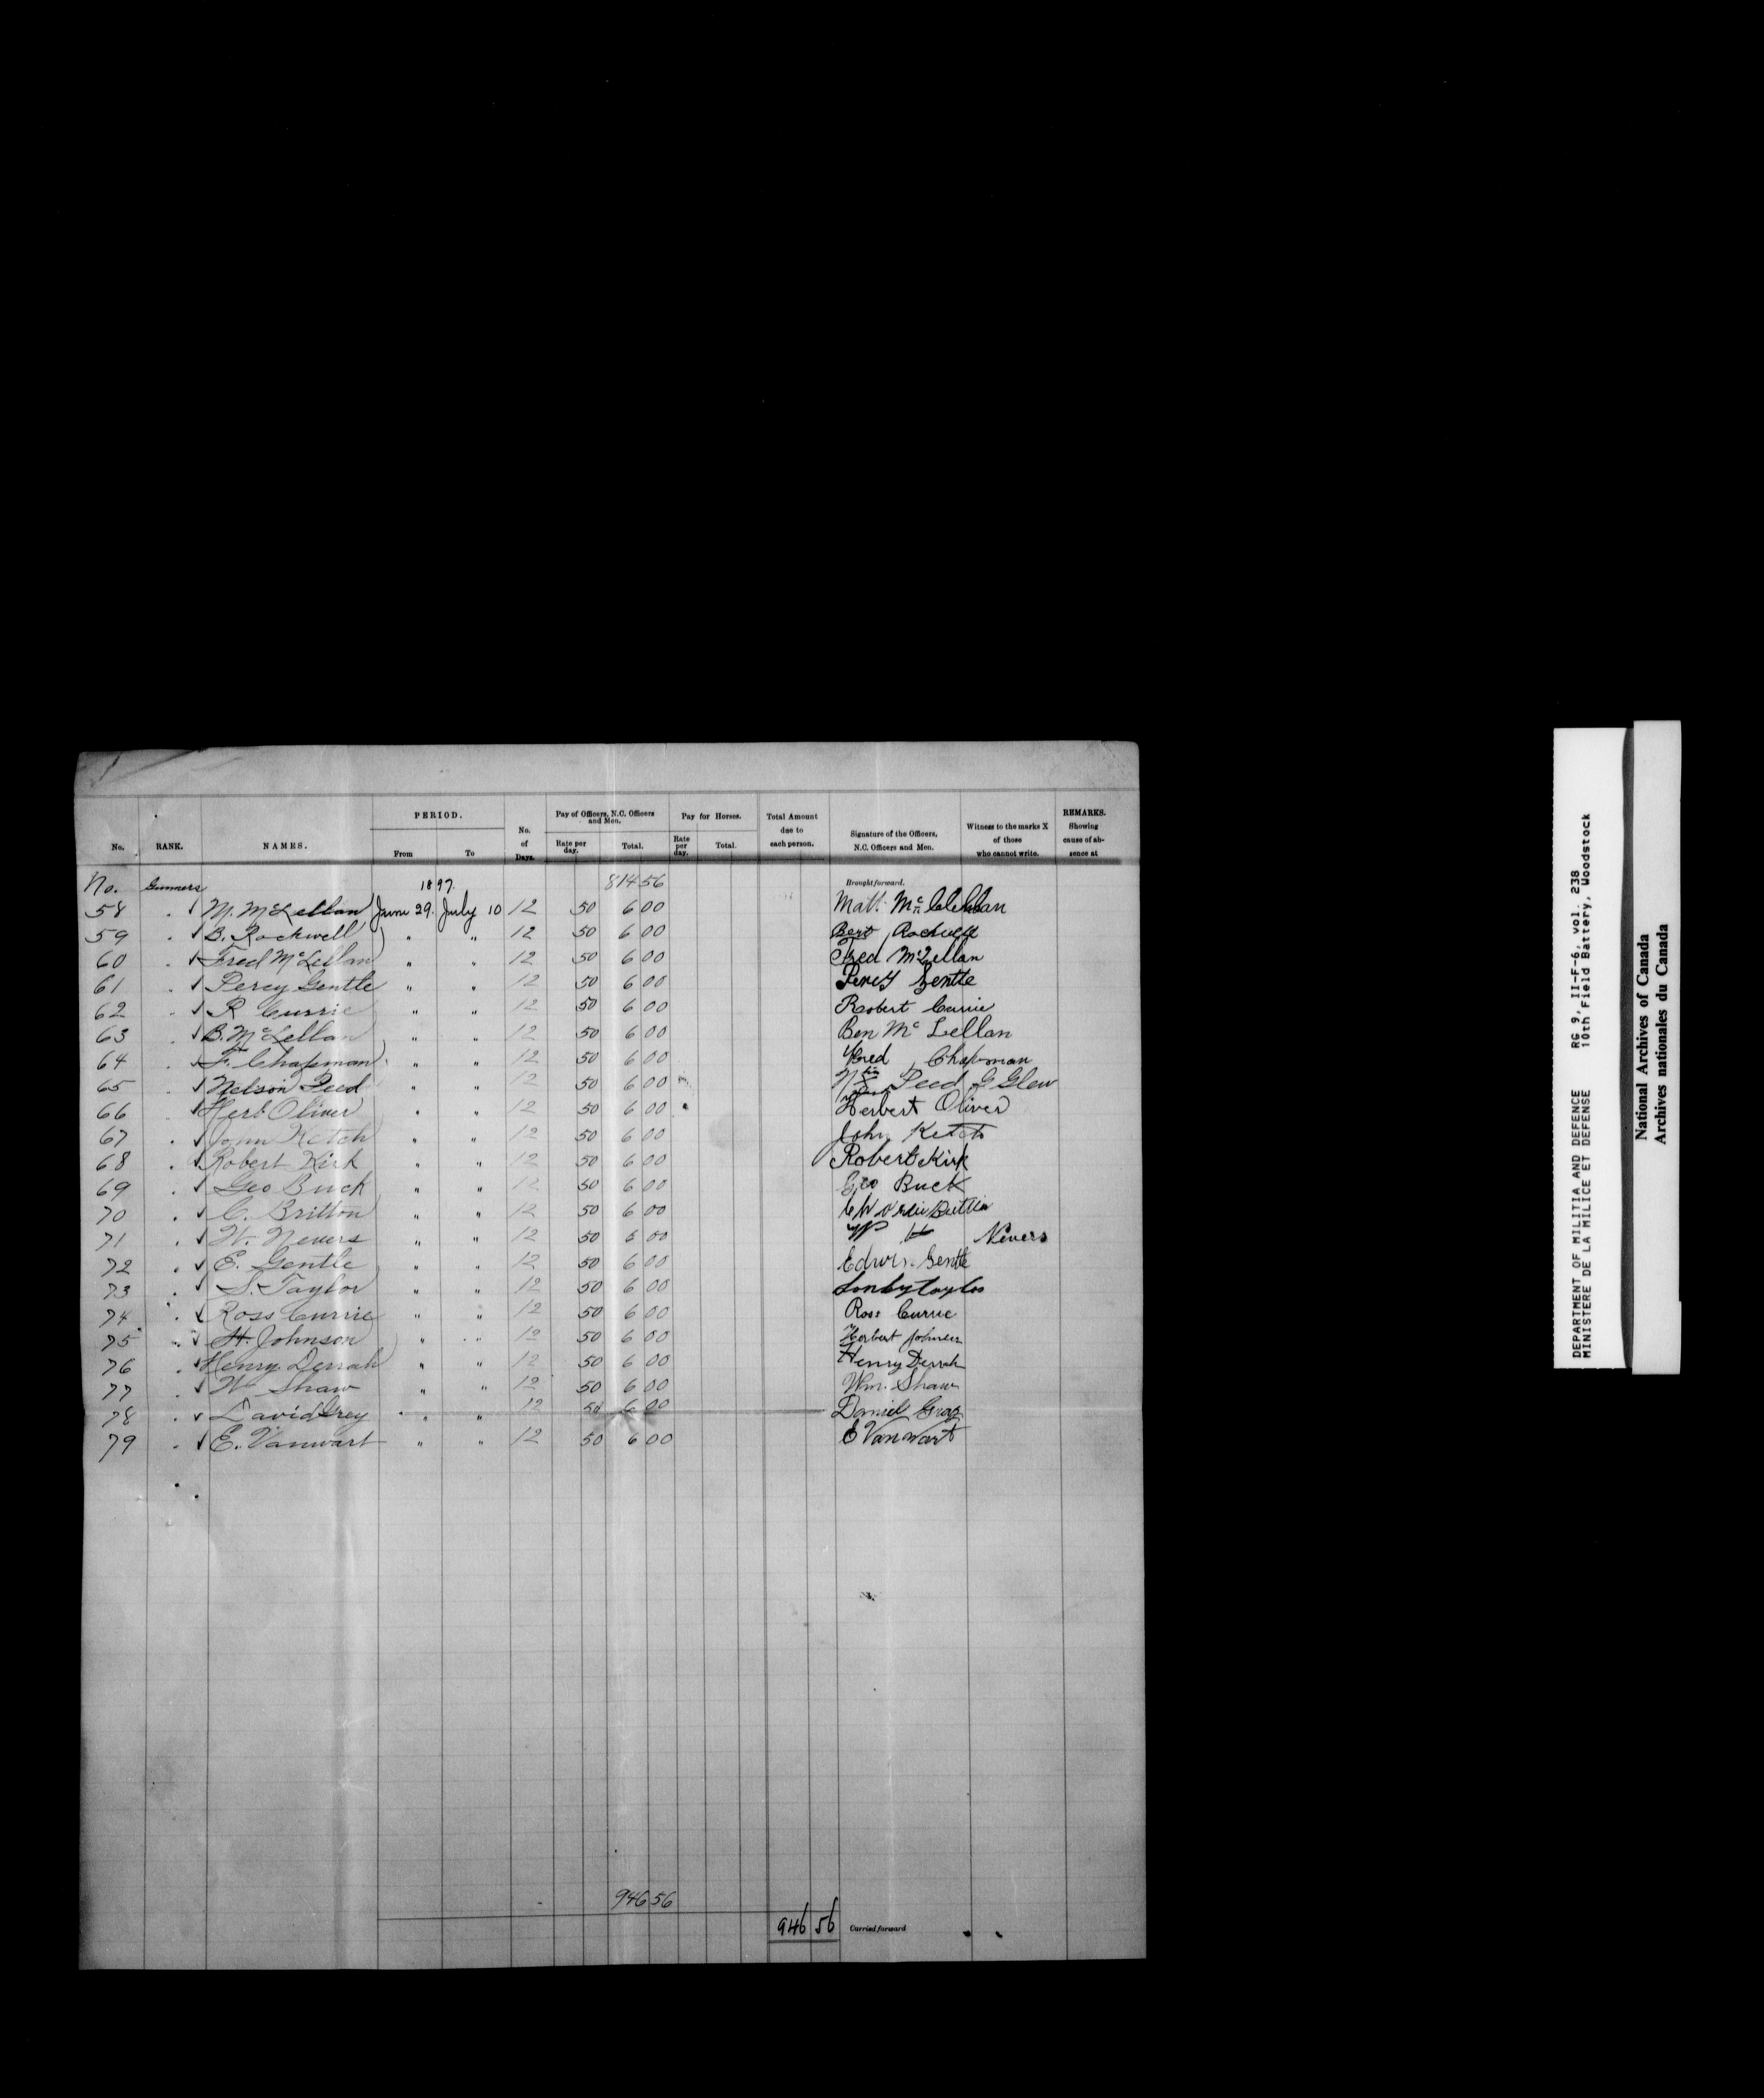 No. RANK. NAMES. PERIOD. From To No. of Days. Pay of Officers, N.C. Officers and Men. Rate per day. Total. Pay for Horses. Rate per day. Total. Total Amount due to each person. Signature of the Officers, N.C. Officers and Men. Witness to the marks X of those who cannot write. REMARKS. Showing cause of absence at
No. Gunners 1897. 814 56 Brought forward.
58 . ✓ M. McLellan June 29. July 10 12 50 6 00 Matt. McClellan
59 . ✓ B. Rockwell " " 12 50 6 00 Bert Rockwell
60 . ✓ Fred McLellan " " 12 50 6 00 Fred McLellan
61 . ✓ Percy Gentle " " 12 50 6 00 Percy Gentle
62 . ✓ R Currie " " 12 50 6 00 Robert Currie
63 . ✓ B. McLellan " " 12 50 6 00 Ben Mc Lellan
64 . ✓ F. Chapman " " 12 50 6 00 Fred Chapman
65 . ✓ Nelson Peed " " 12 50 6 00 N X Peed G Glew
66 ✓ Herb Oliver " " 12 50 6 00 Herbert Oliver
67 . ✓ John Ketch " " 12 50 6 00 John Ketch
68 . ✓ Robert Kirk " " 12 50 6 00 Robert Kirk
69 . ✓ Geo Buck " " 12 50 6 00 Geo Buck
70 . ✓ C. Britton " " 12 50 6 00
71 . ✓ W. Nevers " " 12 50 6 00 W H Nevers
72 . ✓ E. Gentle " " 12 50 6 00 Edwin Gentle
73 . ✓ S. Taylor " " 12 50 6 00 Taylor
74 . ✓ Ross Currie " " 12 50 6 00 Ross Currie
75 . ✓ H. Johnson " " 12 50 6 00 Herbert Johnson
76 . ✓ Henry Derrah " " 12 50 6 00 Henry Derrah
77 . ✓ W Shaw " " 12 50 6 00 Wm. Shaw
78 . ✓ David Grey " " 12 50 6 00 Daniel Gray
79 . ✓ E. Vanwart " " 12 50 6 00 E Vanwart
946 56
946 56 Carried forward
DEPARTMENT OF MILITIA AND DEFENCE RG 9, II-F-6, vol. 238
MINISTERE DE LA MILICE ET DEFENSE 10th Field Battery, Woodstock
National Archives of Canada
Archives nationales du Canada